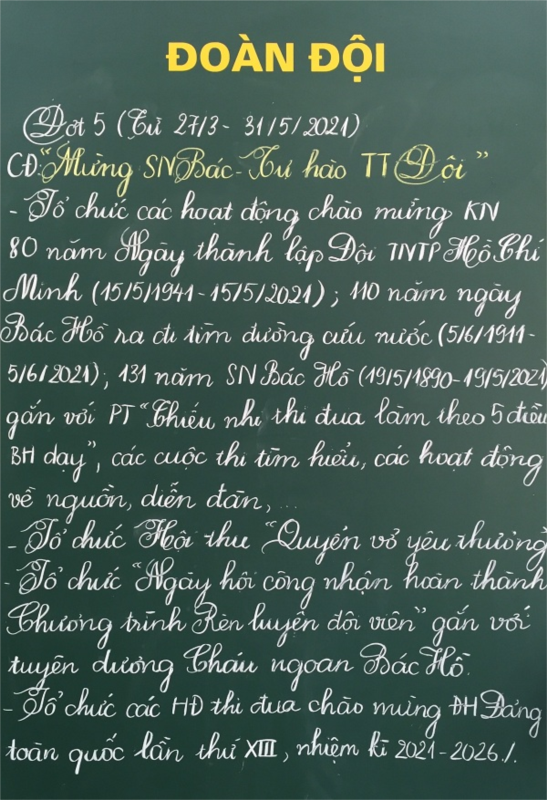 ĐOÀN ĐỘI
Đợt 5 (Từ 27/3 - 31/5/2021)
CĐ: "Mừng SN Bác - Tự hào TT Đội"
- Tổ chức các hoạt động chào mừng KN
80 năm Ngày thành lập Đội TNTP Hồ Chí
Minh (15/5/1941 - 15/5/2021); 110 năm ngày
Bác Hồ ra đi tìm đường cứu nước (5/6/1911-
5/6/2021); 131 năm SN Bác Hồ (19/5/1890-19/5/2021)
gắn với PT "Thiếu nhi thi đua làm theo 5 điều
BH dạy", các cuộc thi tìm hiểu, các hoạt động
về nguồn, diễn đàn,...
- Tổ chức Hội thu "Quyển vở yêu thương
- Tổ chức "Ngày hội công nhận hoàn thành
Chương trình Rèn luyện đội viên" gắn với
tuyên dương Cháu ngoan Bác Hồ.
- Tổ chức các HĐ thi đua chào mừng ĐH Đảng
toàn quốc lần thứ XIII, nhiệm kì 2021-2026./.